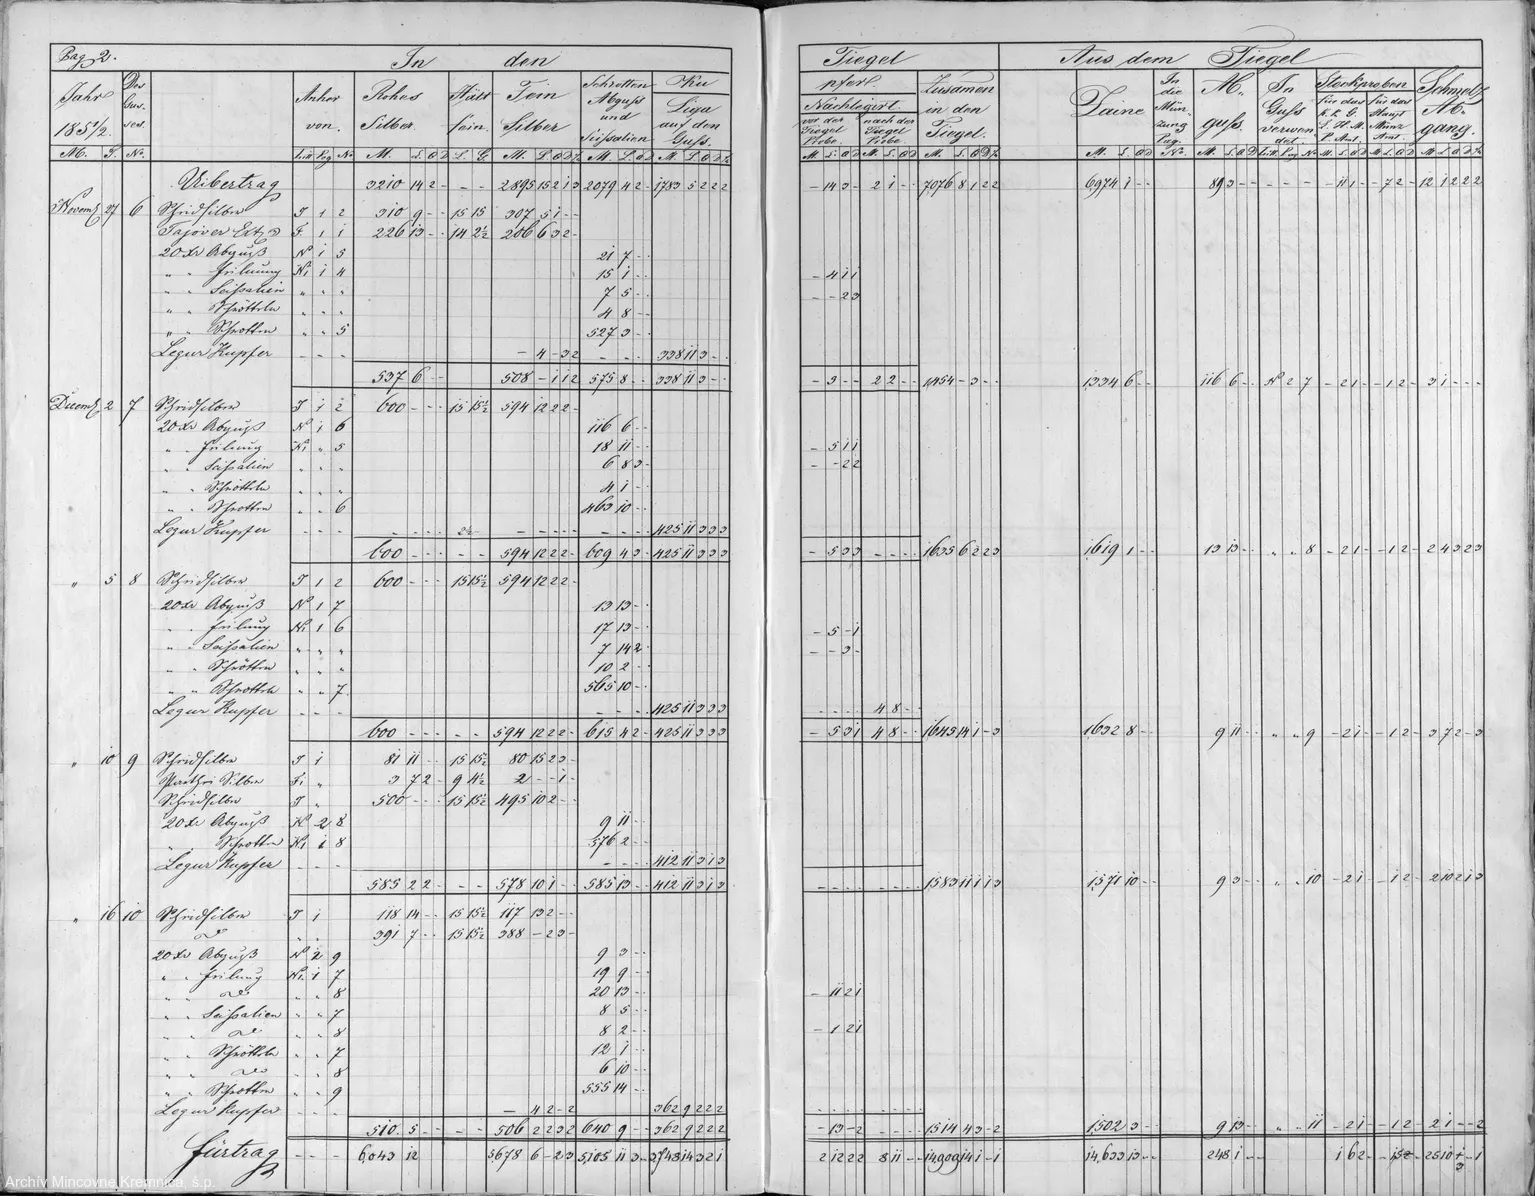 Pag 2. In den Tiegel Aus dem Tiegel
Jahr 1851/2. Des Gusses. Anher von. Rohes Silber Hält fein. Fein Silber Schrotten Abguss und Scissalien Ku pfer. Zusamen in den Tiegel. Zaine In die Münzung Pag. Abguss. In Guss verwendet. Stockproben Schmelz Abgang.
Liga auf den Guss. Nachlegirt. vor der Tiegel Probe nach der Tiegel Probe für das K. L. G. L. H. M. P. Amt. für das Haupt Münz Amt.
M. T. No. Litt Pag No M. L. Q D L. G M. L. Q D M L Q D M L Q D
Uibertrag 3210 14 2 - - - 2895 15 2 1 3 2079 4 2 - 1783 5 2 2 2 - 14 3 - 2 1 - - 7076 8 1 2 2 6974 1 - - 89 3 - - - 11 1 - - 7 2 - 12 1 2 2 2
Novemb 27 6 Scheidsilber T 1 2 310 9 - - 15 15 307 5 1 - -
Tajover Ext. F. 1 1 226 13 - - 14 2½ 206 6 3 2 -
20 Xr Abguß No 1 5 21 7 - -
" " Feilung Ki 1 4 15 1 - - - 4 1 1
" " Scissalien " " " 7 5 - - - - 2 3
" " Schröttln " " " 4 8 - -
" " Schrotten " " 5 527 3 - -
Legur Kupfer - - - - 4 - 3 2 - - - 338 11 3 - -
537 6 - - 508 - 1 1 2 575 8 - - 338 11 3 - - - 3 - - 2 2 - - 1454 - 3 - - 1334 6 - - 116 6 - - No 2 7 - 2 1 - - 1 2 - 3 1 - - -
Decemb 2 7 Scheidsilber T 1 2 600 - - - 15 15½ 594 12 2 2 -
20 Xr Abguß No 1 6 116 6 - -
" " Feilung Ki " 5 18 11 - - - 5 1 1
" " Scissalien " " " 6 8 3 - - - 2 2
" " Schröttln " " " 4 1 - -
" " Schrotten " " 6 463 10 - -
Legur Kupfer - - - 425 11 3 3 3
600 - - - - - 594 12 2 2 - 609 4 3 - 425 11 3 3 3 - 5 3 3 - - - - 1635 6 2 2 3 1619 1 - - 13 13 - - " " 8 - 2 1 - - 1 2 - 2 4 3 2 3
" 5 8 Scheidsilber T 1 2 600 - - - 15 15½ 594 12 2 2 -
20 Xr Abguß No 1 7 13 13 - -
" " Feilung Ki 1 6 17 13 - - - 5 - 1
" " Scissalien " " " 7 14 2 - - - 3 -
" " Schrötten " " 10 2 - -
" " Schrotten " " 7 565 10 - -
Legur Kupfer - - - 425 11 3 3 3 4 8 - -
600 - - - - - 594 12 2 2 - 615 4 2 - 425 11 3 3 3 - 5 3 1 4 8 - - 1645 14 1 - 3 1632 8 - - 9 11 - - " " 9 - 2 1 - - 1 2 - 3 7 2 - 3
" 10 9 Scheidsilber T 1 81 11 - - 15 15½ 80 15 2 3 -
Silber Fi " 3 7 2 - 9 4½ 2 - - 1 -
Scheidsilber T " 500 - - - 15 15½ 495 10 2 - -
20 Xr Abguß No 2 8 9 11 - -
" " Schrotten Ki 1 8 576 2 - -
Legur Kupfer - - - 412 11 3 1 3
585 2 2 - - - 578 10 1 - - 585 13 - - 412 11 3 1 3 1583 11 1 1 3 1571 10 - - 9 3 - - " " 10 - 2 1 - - 1 2 - 2 10 2 1 3
" 16 10 Scheidsilber T 1 118 14 - - 15 15½ 117 13 2 - -
do 391 7 - - 15 15½ 388 - 2 3 -
20 Xr Abguß No 2 9 9 3 - -
" " Feilung Ki 1 7 19 9 - -
" " do " " 8 20 13 - - - 11 2 1
" " Scissalien " " 7 8 5 - -
" " do " " 8 8 2 - - - 1 2 1
" " Schröttln " " 7 12 1 - -
" " do " " 8 6 10 - -
" " Schrotten " " 9 555 14 - -
Legur Kupfer - - - - 4 2 - 2 362 9 2 2 2
510 5 - - - - 506 2 2 3 2 640 9 - - 362 9 2 2 2 - 13 - 2 - - - - 1514 4 3 - 2 1502 3 - - 9 13 - - " " 11 - 2 1 - - 1 2 - 2 1 - - 2
Fürtrag - - - 6043 12 5678 6 - 2 3 5105 11 3 - 3748 14 3 2 1 2 12 2 2 8 11 - - 14909 14 1 - 1 14,633 13 - - 248 1 - - 1 6 2 - 25 10
Archiv Mincovne Kremnica, š.p.